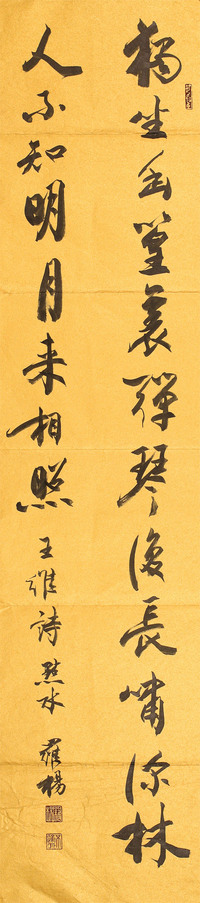 獨坐幽篁裏彈琴復長嘯深林
人不知明月来相照 王維詩 水 羅楊